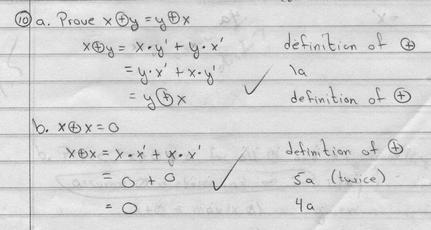 ⑩ a. Prove x⊕y = y⊕x
x⊕y = x·y' + y·x' definition of ⊕
= y·x' + x·y' 1a
= y⊕x definition of ⊕
b. x⊕x = 0
x⊕x = x·x' + x·x' definition of ⊕
= 0 + 0 5a (twice)
= 0 4a